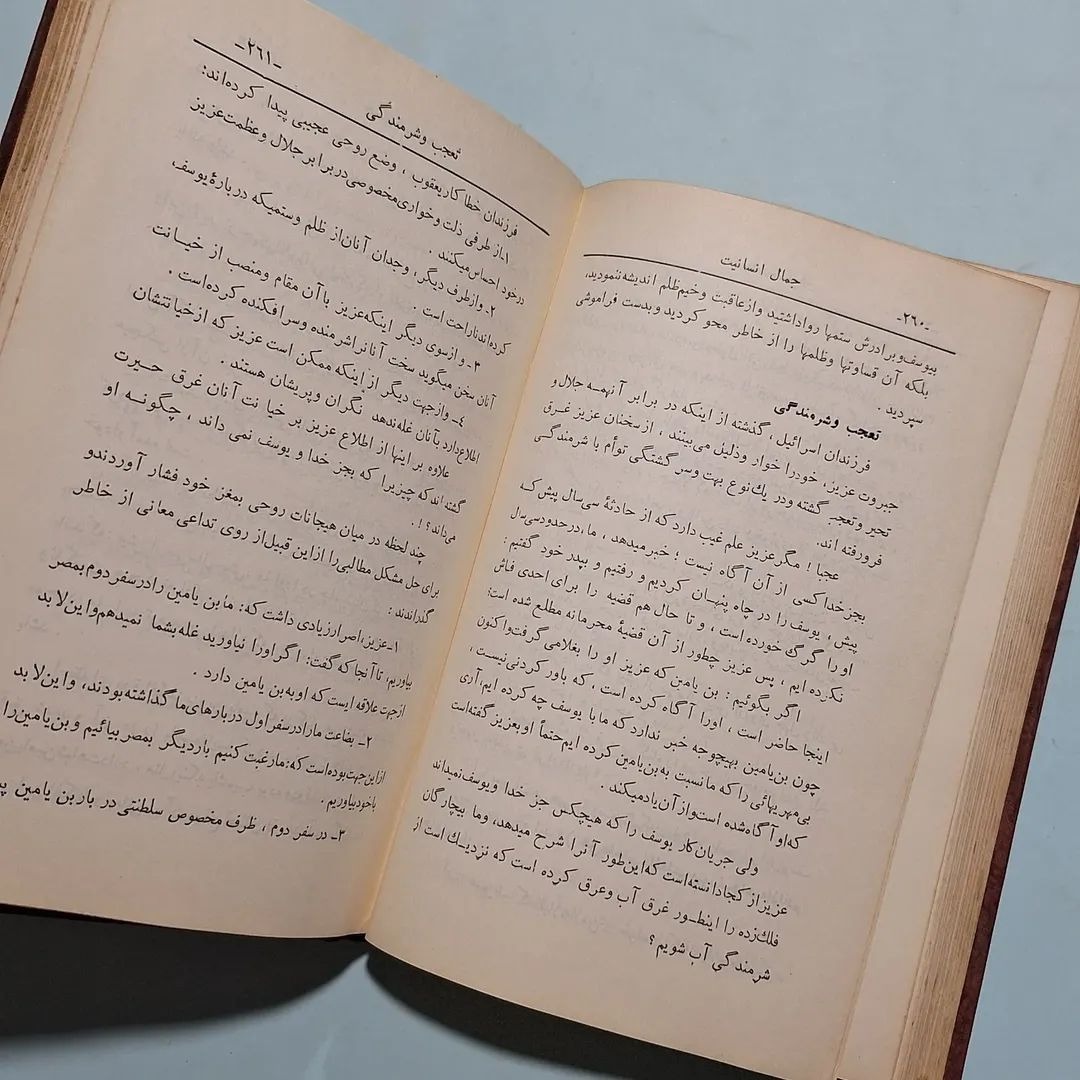 -۲۶۰-
جمال انسانیت
بیوسف‌وبرادرش ستمها رواداشتید وازعاقبت وخیم‌ظلم اندیشه‌ننمودید،
بلکه آن قساوتها وظلمها را از خاطر محو کردید وبدست فراموشی
سپردید .
تعجب وشرمندگی
فرزندان اسرائیل ، گذشته از اینکه در برابر آنهمه جلال و
جبروت عزیز، خودرا خوار وذلیل می‌بینند ، ازسخنان عزیز غرق
تحیر وتعجب گشته ودر یك نوع بهت وسرگشتگی توأم با شرمندگی
فرورفته اند.
عجبا ! مگرعزیز علم غیب دارد که از حادثهٔ سی‌سال پیش که
بجزخداکسی از آن آگاه نیست ؛ خبرمیدهد ، ما،درحدودسی‌سال
پیش ، یوسف را در چاه پنهان کردیم و رفتیم و بپدر خود گفتیم :
او را گرگ خورده است ، و تا حال هم قضیه را برای احدی فاش
نکرده ایم ، پس عزیز چطور از آن قضیهٔ محرمانه مطلع شده است؛
اگر بگوئیم : بن یامین که عزیز او را بغلامی گرفت‌واکنون
اینجا حاضر است ، اورا آگاه کرده است ، که باور کردنی‌نیست ،
چون بن‌یامین بهیچوجه خبر ندارد که ما با یوسف چه کرده ایم،آری
بی‌مهریهائی را که مانسبت به‌بن‌یامین کرده ایم‌حتماً اوبعزیز گفته‌است
که‌اوآگاه‌شده است‌وازآن‌یادمیکند .
ولی جریان‌کار یوسف را که هیچکس جز خدا ویوسف‌نمیداند
عزیزاز کجادانسته‌است که‌این‌طور آنرا شرح میدهد، وما بیچارگان
فلك‌زده را اینطـور غرق آب وعرق کرده است که نزدیـك است از
شرمندگی آب شویم ؟
-۲۶۱-
تعجب وشرمندگی
فرزندان خطاکاریعقوب ، وضع روحی عجیبی پیدا کرده‌اند:
۱ـ‌از طرفی ذلت وخواری‌مخصوصی‌دربرابر جلال وعظمت‌عزیز
درخود احساس‌میکنند .
۲ـ وازطرف دیگر، وجدان آنان‌از ظلم وستمیکه دربارهٔیوسف
کرده‌اند‌ناراحت است .
۳ـ وازسوی دیگر اینکه‌عزیز باآن مقام ومنصب از خیـانت
آنان سخن میگوید سخت آنانراشرمنده وسرافکنده کرده‌است .
٤ـ وازجهت دیگر از اینکه ممکن است عزیز که ازخیانتشان
اطلاع‌دارد بآنان غله‌ندهد نگران وپریشان هستند .
علاوه بر اینها از اطلاع عزیز بر خیا نت آنان غرق حیـرت
گشته اند‌که چیزیرا که بجز خدا و یوسف نمی داند ، چگونـه او
می‌داند؟! .
چند لحظه در میان هیجانات روحی بمغز خود فشار آوردندو
برای حل مشکل مطالبی‌را ازاین قبیل‌از روی تداعی معانی از خاطر
گذراندند :
۱ـ‌عزیز،اصرارزیادی داشت که: مابن یامین رادرسفر دوم‌بمصر
بیاوریم، تاآنجا که‌گفت: اگراورا نیاورید غله‌بشما نمیدهم‌واین‌لابد
ازجهت علاقه ایست که اوبه‌بن یامین دارد .
۲ـ بضاعت مارادرسفر اول دربارهای‌ما گذاشته‌بودند، واین‌لابد
ازاین‌جهت‌بوده‌است که:مارغبت کنیم باردیگر بمصر بیائیم وبن‌یامین‌را
باخودبیاوریم .
۳ـ در سفر دوم ، ظرف مخصوص سلطنتی در بار بن یامین